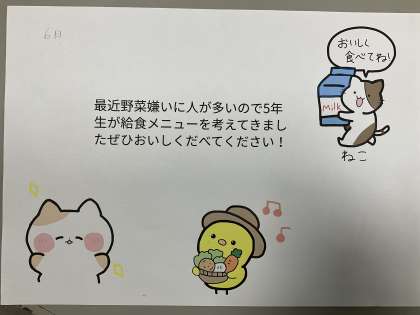 6日
おいしく
食べてね!
Milk
ねこ
最近野菜嫌いに人が多いので5年
生が給食メニューを考えてきまし
たぜひおいしくだべてください!